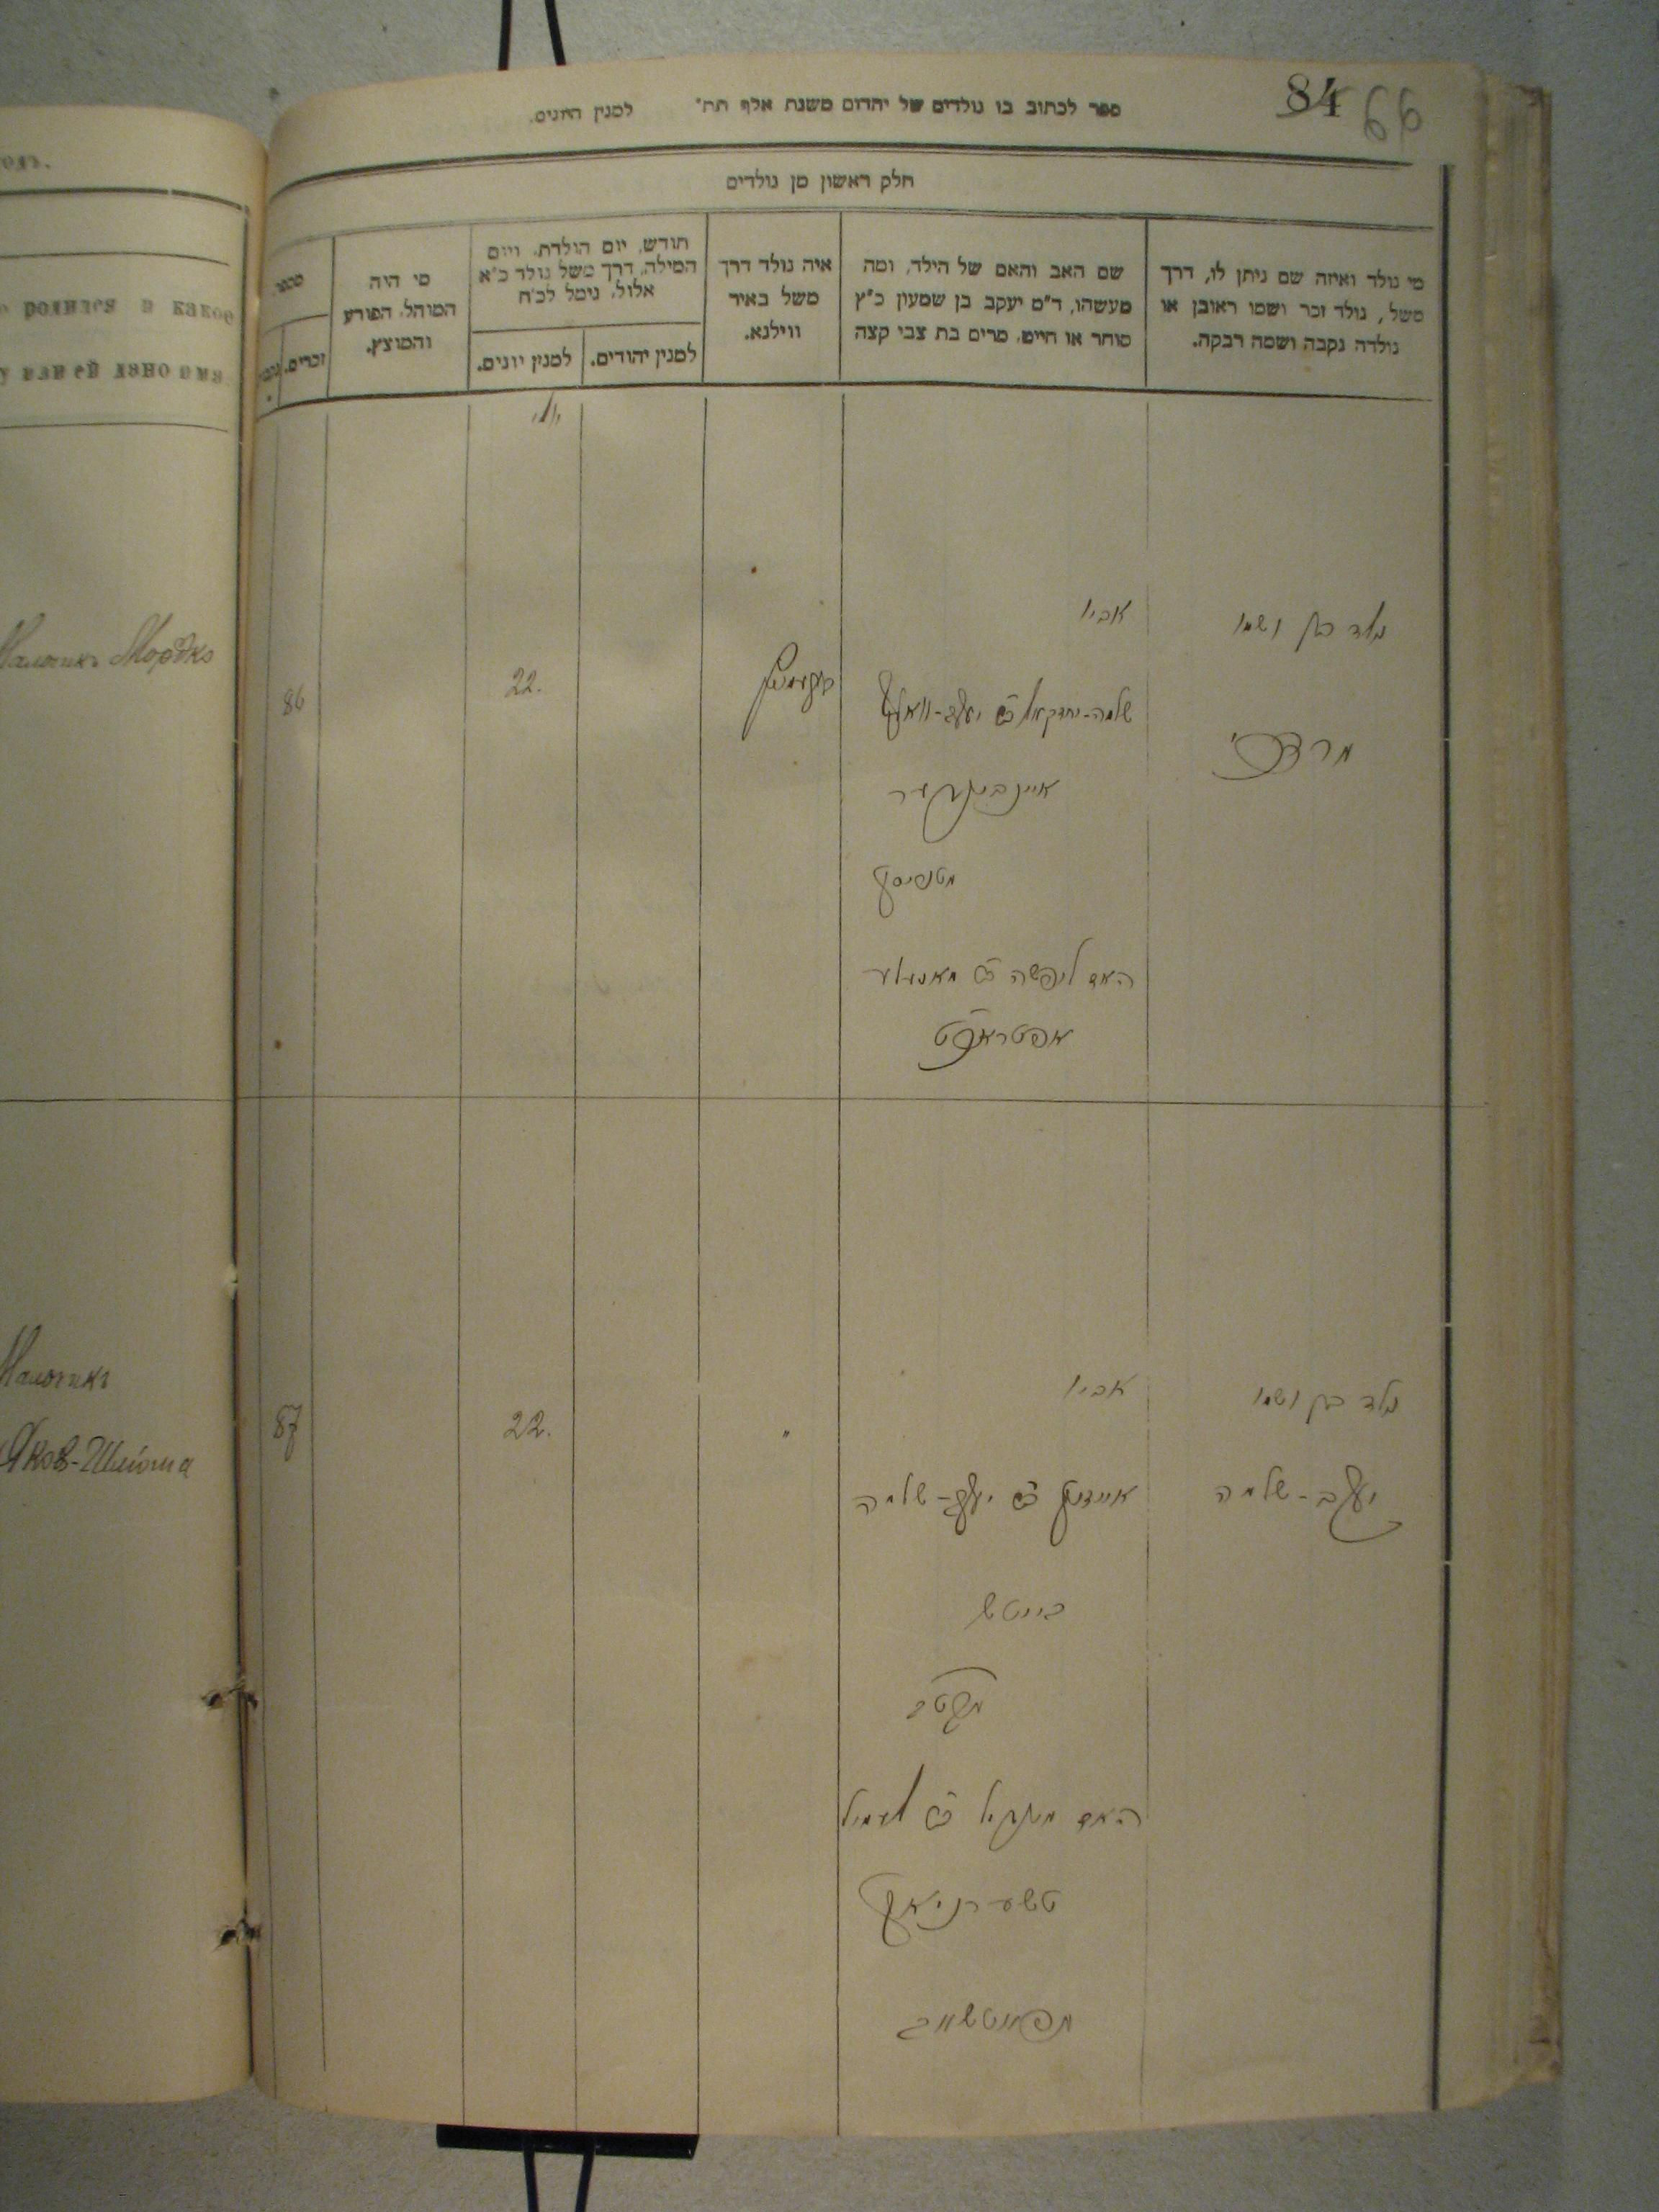 84 66
ספר לכתוב בו נולדים של יהדום משנת אלף תת" למנין היונים.
חלק ראשון מן נולדים
מי נולד ואיזה שם ניתן לו, דרך
משל, נולד זכר ושמו ראובן או
נולדה נקבה ושמה רבקה.
שם האב והאם של הילד, ומה
מעשהו, ד"מ יעקב בן שמעון כ"ץ
סוחר או חייט, מרים בת צבי קצה
איה נולד דרך
משל באיר
ווילנא.
חודש, יום הולדת, ויום
המילה, דרך משל נולד כ"א
אלול, נימל לכ"ח
למנין יהודים.
למנין יונים.
מי היה
המוהל, הפורע
והמוצץ.
מספר
זכרים.
одъ.
родился и какое
или ей дано имя
נולד בן ושמו
מרדכי
אביו
שלמה-יחזקאל בן יעקב-וואלף
האם ליפשה בת
22.
86
Мальчикъ Мордко
נולד בן ושמו
יעקב-שלמה
אביו
בן יעקב-שלמה
האם
טשערניאק
"
22.
87
Мальчикъ
Яков-Шлйома